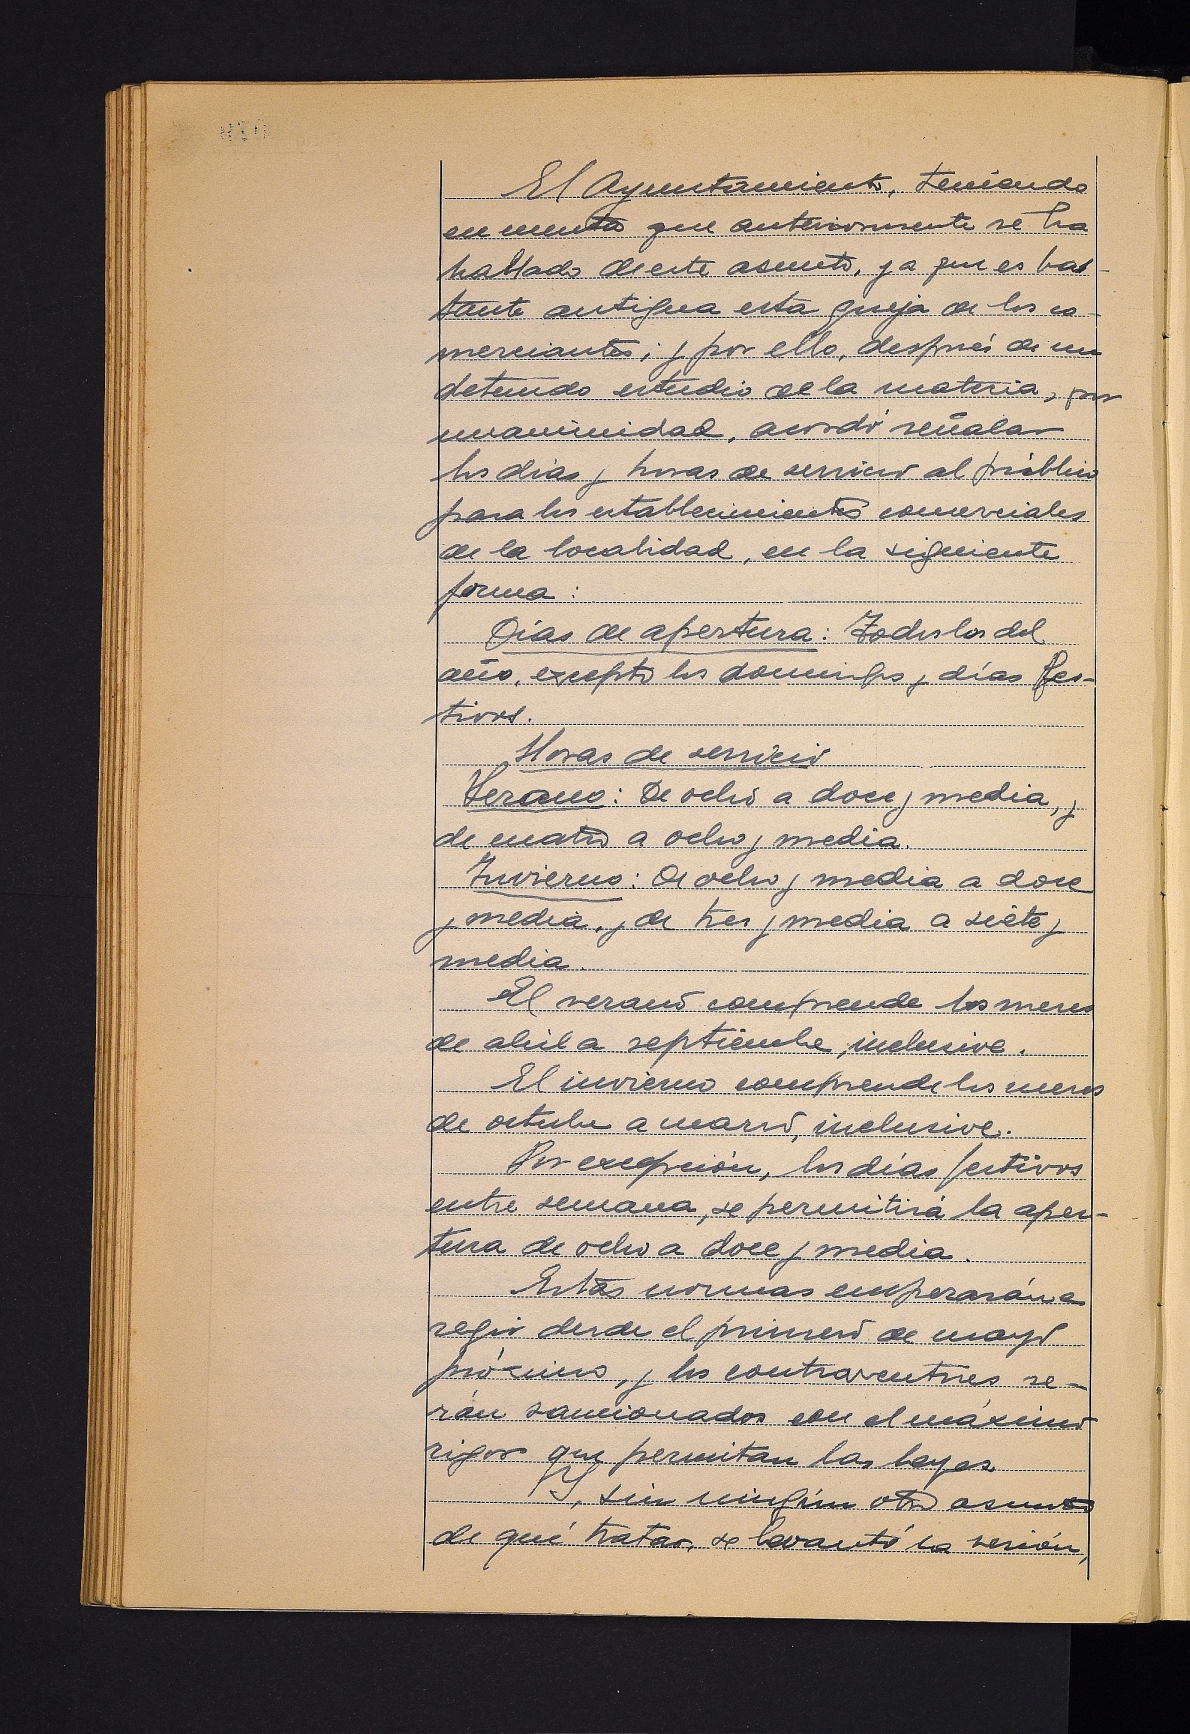 El Ayuntamiento, teniendo
en cuenta que anteriormente se ha
hablado de este asunto, ya que es bas-
tante antigua esta queja de los co-
merciantes; y por ello, después de un
detenido estudio de la materia, por
unanimidad, acordó señalar
los días y horas de servicio al público
para los establecimientos comerciales
de la localidad, en la siguiente
forma:
Días de apertura: Todos los del
año, excepto los domingos y días fes-
tivos.
Horas de servicio
Verano: De ocho a doce y media, y
de cuatro a ocho y media.
Invierno: De ocho y media a doce
y media, y de tres y media a siete y
media.
El verano comprende los meses
de abril a septiembre, inclusive.
El invierno comprende los meses
de octubre a marzo, inclusive.
Por excepción, los días festivos
entre semana, se permitirá la aper-
tura de ocho a doce y media.
Estas normas empezarán a
regir desde el primero de mayo
próximo, y los contraventores se-
rán sancionados con el máximo
rigor que permitan las leyes.
Y, sin ningún otro asunto
de qué tratar, se levantó la sesión,